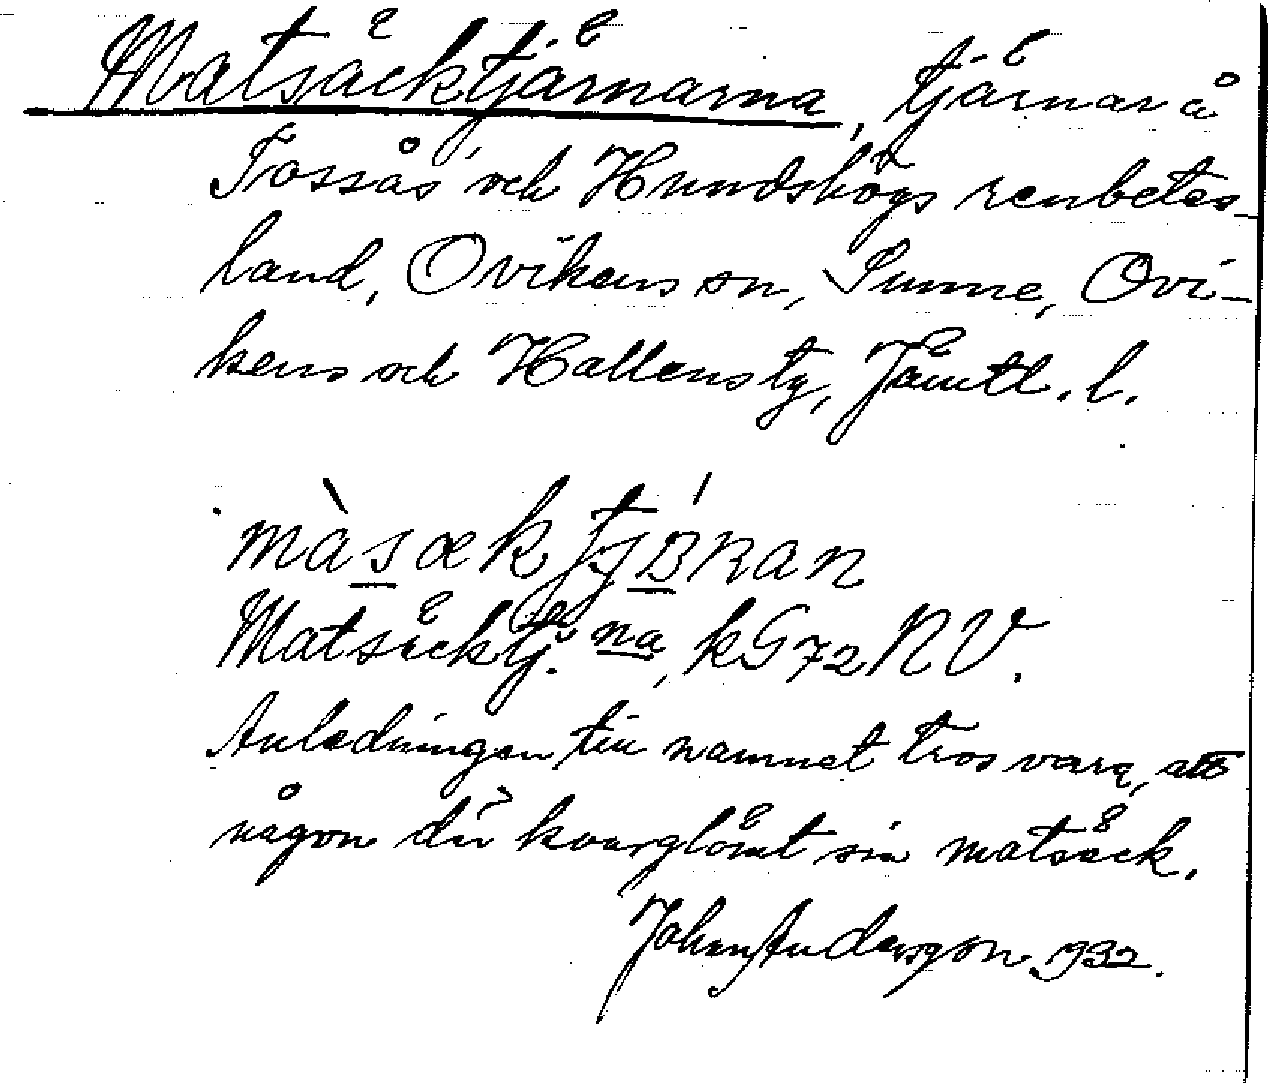 Matsäcktjärnarna, tjärnar å
Tossås och Hundshögs renbetes-
land, Ovikens sn, Sunne, Ovi-
kens och Hallens tg, Jämtl. l.
màsækstjɃ́ʀan
Matsäcktj:na, kG72NV.
Anledningen till namnet tros vara, att
någon där kvarglömt sin matsäck.
Johan Andersson 1932.